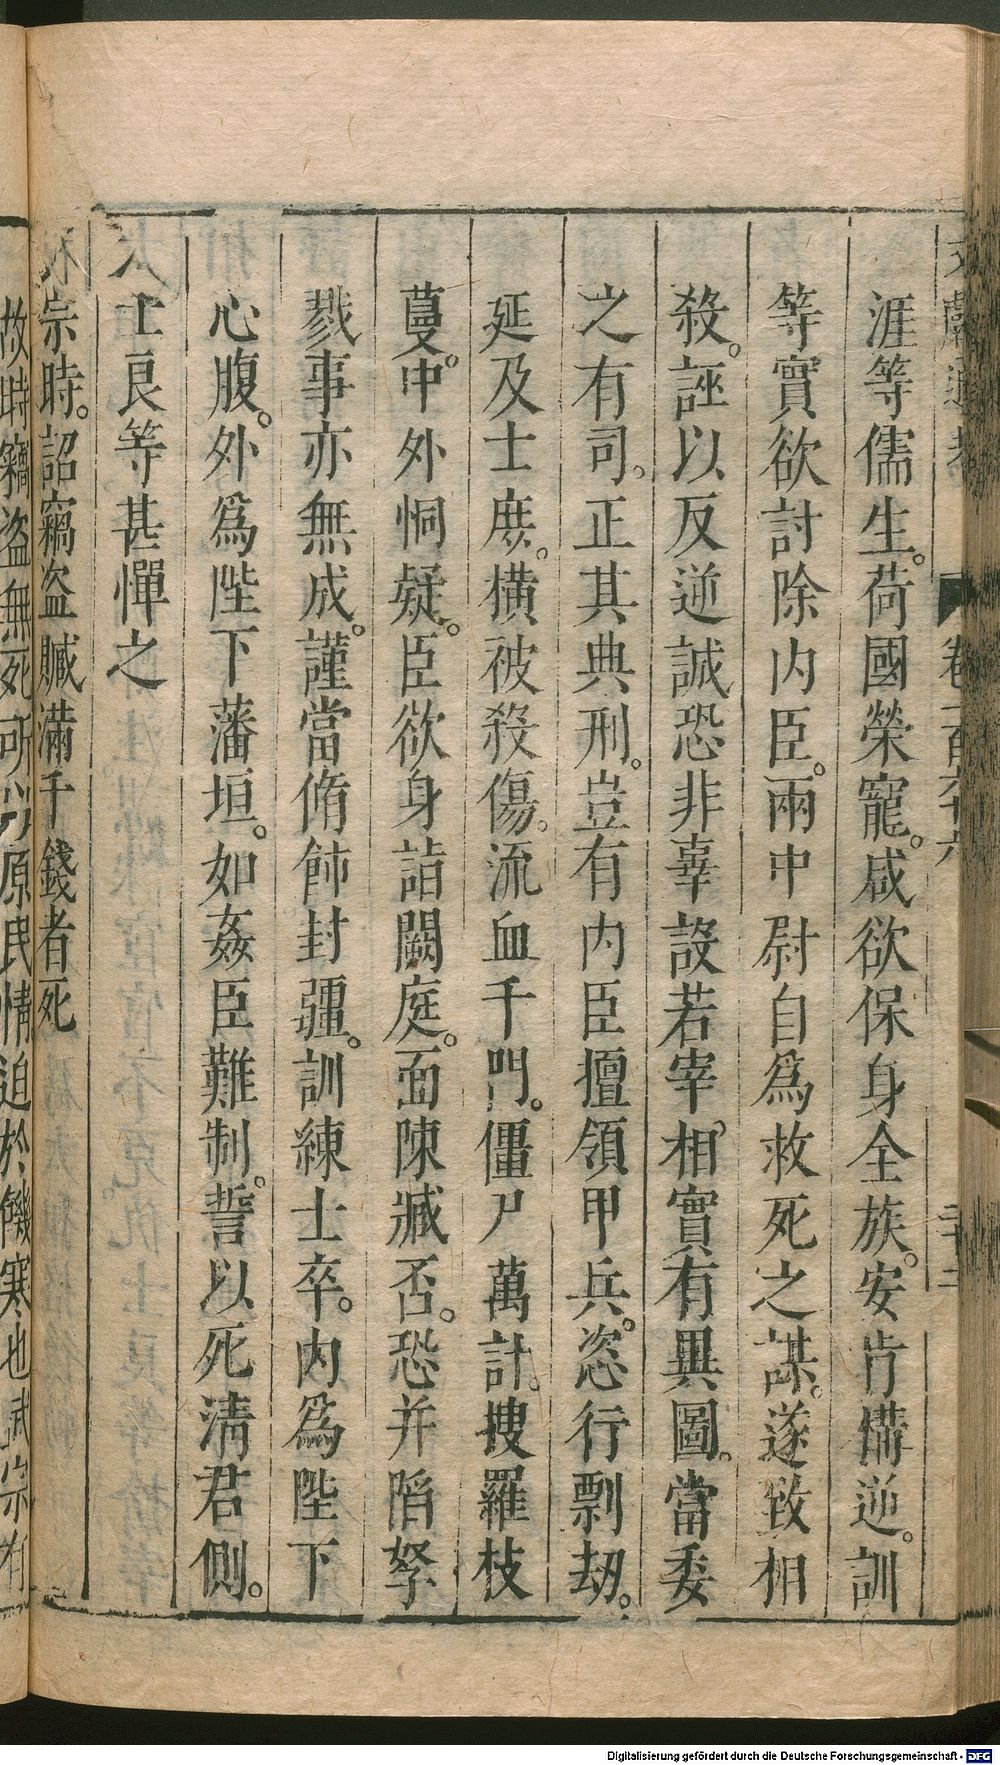 文獻通考 卷一百六十六 二十二
涯等儒生。荷國榮寵。咸欲保身全族。安肯構逆。訓
等實欲討除内臣。兩中尉自爲救死之謀。遂致相
殺。誣以反逆誠恐非辜設若宰相實有異圖。當委
之有司。正其典刑。豈有内臣擅領甲兵。恣行剽劫。
延及士庶。橫被殺傷。流血千門。僵尸萬計。搜羅枝
蔓。中外恫疑。臣欲身詣闕庭。面陳臧否。恐并陷孥
戮事亦無成。謹當脩飾封疆。訓練士卒。内爲陛下
心腹。外爲陛下藩垣。如姦臣難制。誓以死清君側。
人士良等甚憚之
宗時。詔竊盜贓滿千錢者死
故時竊盜無死所以原民情迫於饑寒也武宗有
Digitalisierung gefördert durch die Deutsche Forschungsgemeinschaft - DFG